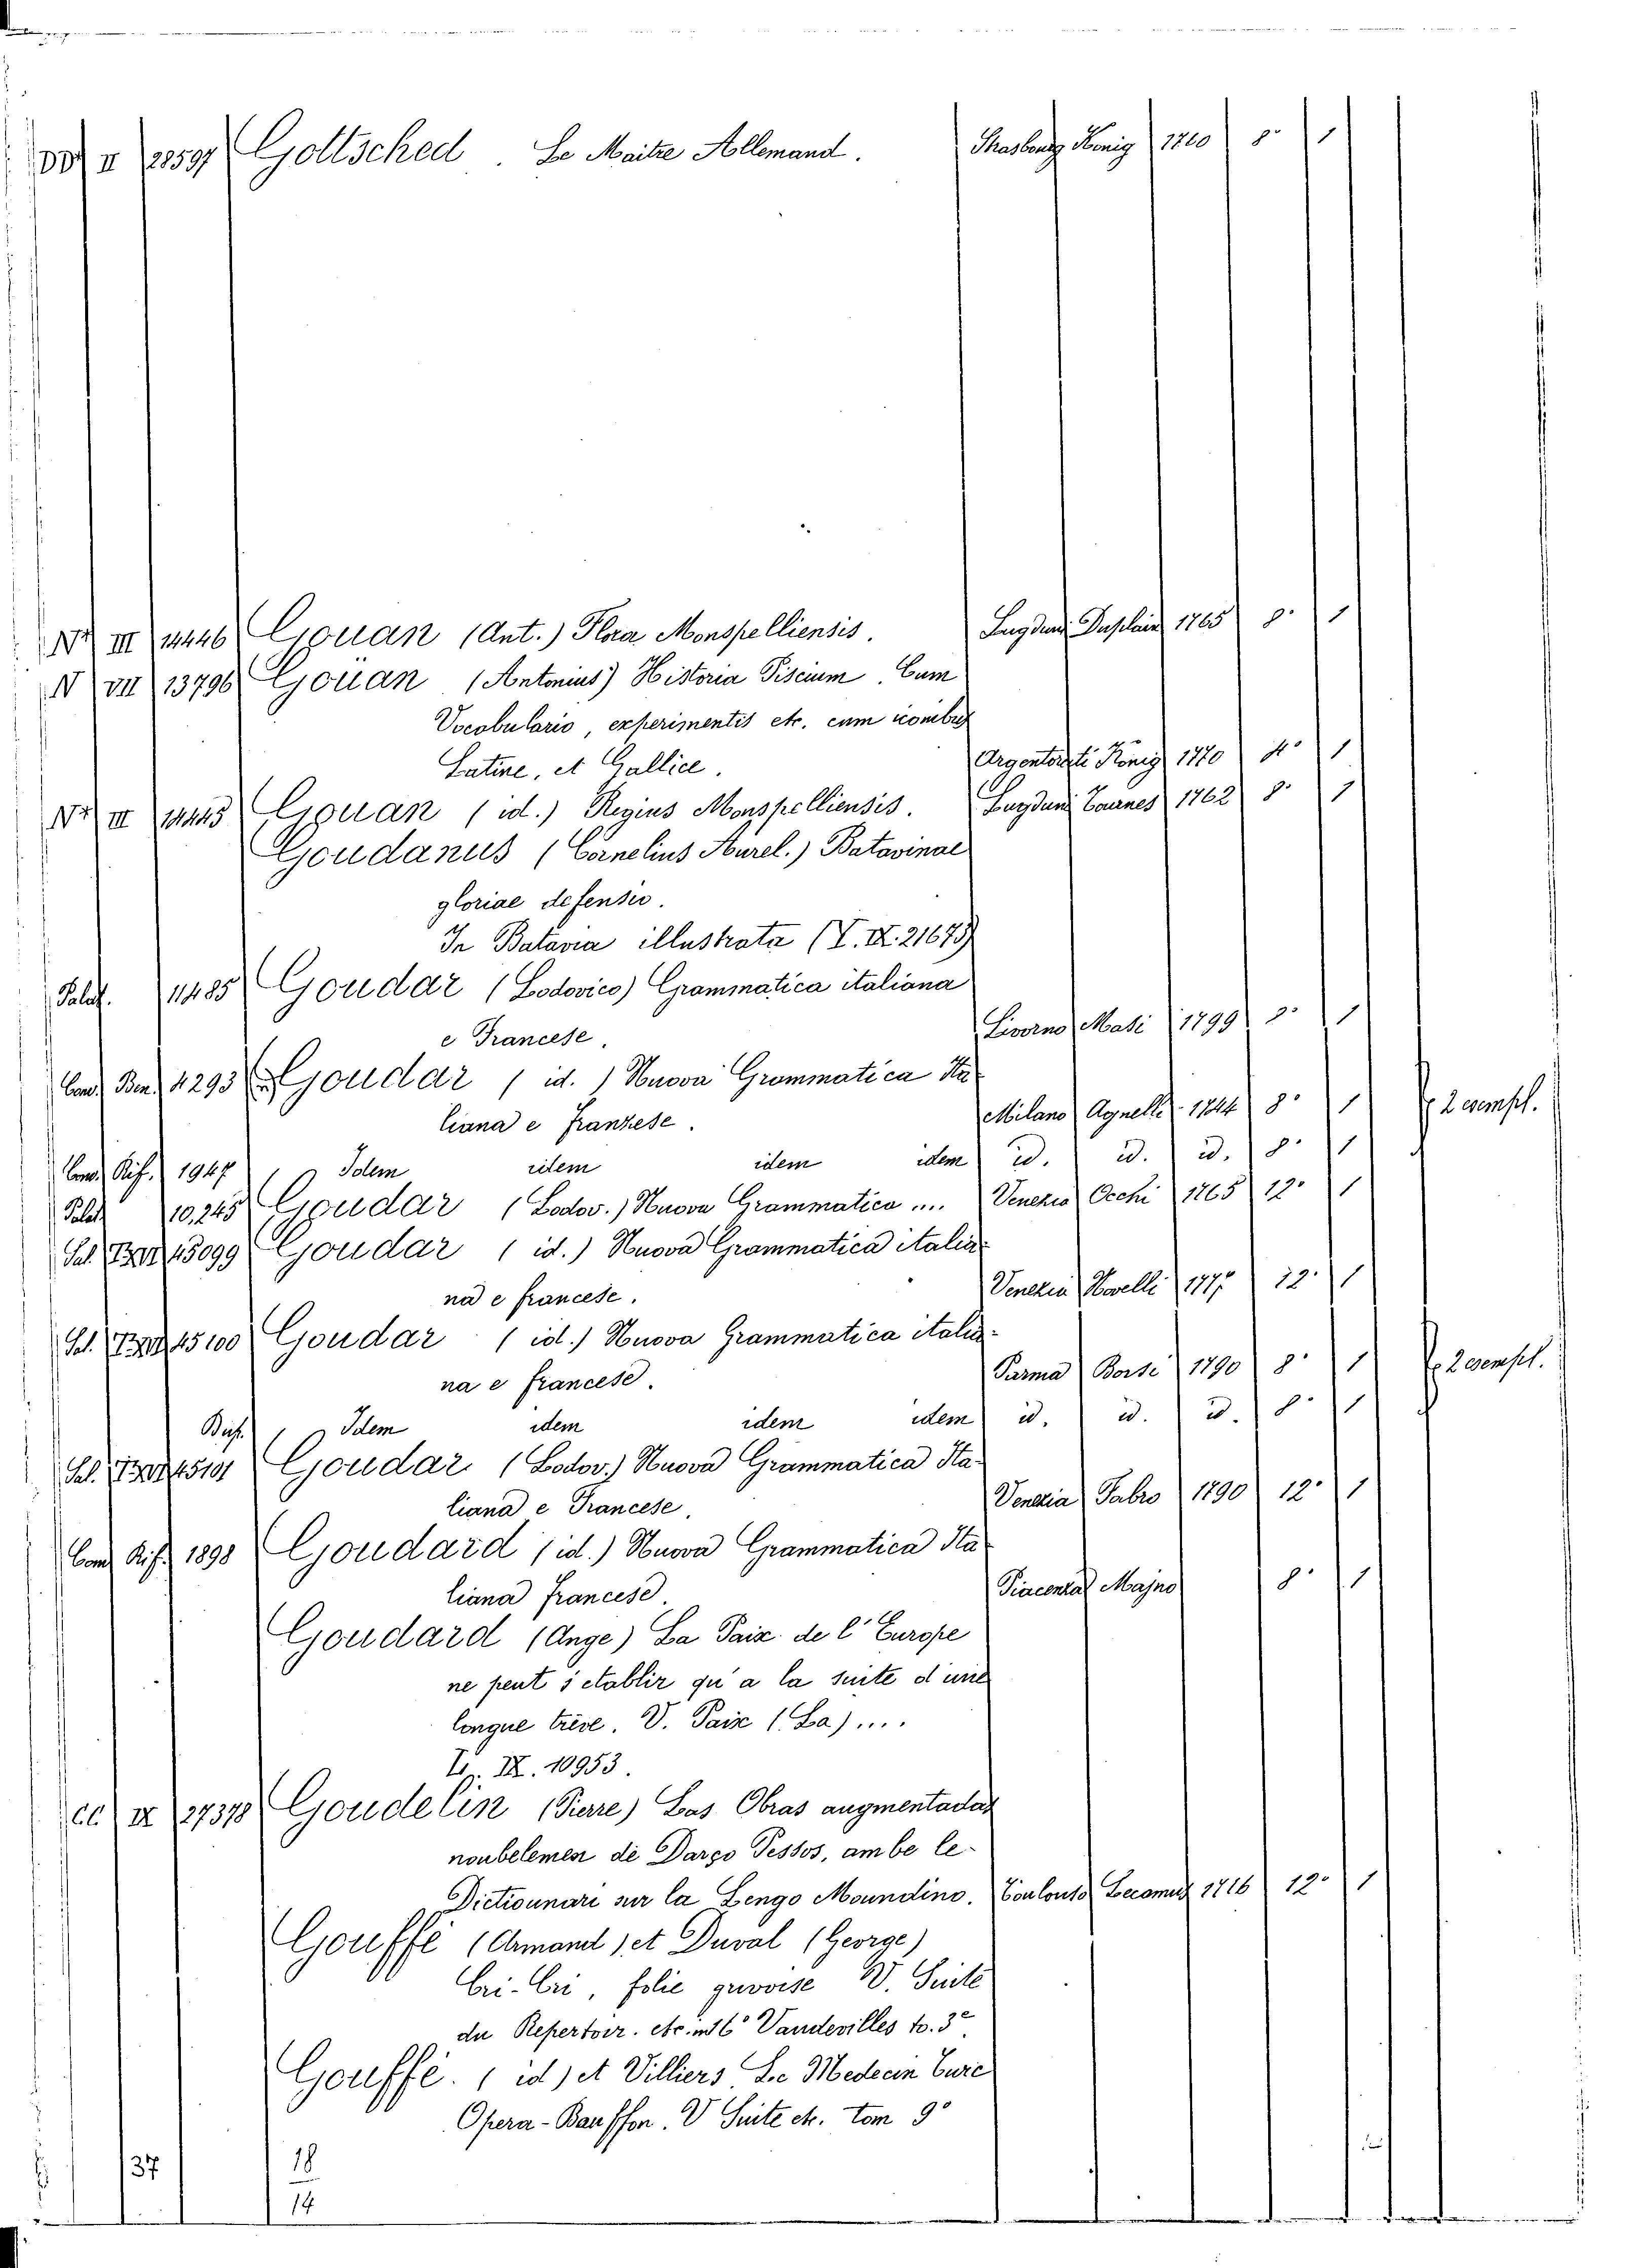 II 28597 Gottsched. Le Maitre Allemand. Strasbourg König 1760 8º 1
Nº III 14446 Gouan (Ant.) Flora Monspelliensis. Lugduni Duplain 1765 8º 1
N VII 13796 Goüan (Antonius) Historia Piscium. Cum
Vocobulario, experimentis etc. cum iconibus
Latine, et Gallice. Argentorati König 1770 4º 1
Nº III 14445 Gouan (id.) Regius Monspelliensis. Lugduni Tournes 1762 8º 1
Goudanus (Cornelius Aurel.) Batavinae
gloriae defensio.
In Batavia illustrata (V. IX. 21675)
Palat. 11485 Goudar (Lodovico) Grammatica italiana
e Francese. Livorno Masi 1799 8º 1
Cond. Ben. 4293 Goudar (id.) Nuova Grammatica Ita-
liana e franzese. Milano Agnelli 1744 8º 1 2 esempl.
Cond. Rif. 1947 Idem idem idem idem id. id. id. 8º 1
Palat. 10,245 Goudar (Lodov.) Nuova Grammatica .... Venezia Occhi 1765 12º 1
Sal. 45099 Goudar (id.) Nuova Grammatica italia-
na e francese. Venezia Novelli 1777 12º 1
Sal. 45100 Goudar (id.) Nuova Grammatica italia-
na e francese. Parma Borsi 1790 8º 1 2 esempl.
Buf. Idem idem idem idem id. id. id. 8º 1
Sal. 45101 Goudar (Lodov.) Nuova Grammatica Ita-
liana e Francese. Venezia Fabro 1790 12º 1
Cond. Rif. 1898 Goudard (id.) Nuova Grammatica Ita-
liana francese. Piacenza Majno 8º 1
Goudard (Ange) La Paix de l'Europe
ne peut s'etablir qu'a la suite d'une
longue trève. V. Paix (La)....
IX. 10953.
CC IX 27378 Goudelin (Pierre) Las Obras augmentadas
noubelemen de Darço Pessos, ambe le
Dictiounari sur la Lengo Moundino. Toulouso Lecamus 1716 12º 1
Gouffé (Armand) et Duval (George)
Cri-Cri, folie grivoise V. Suite
du Repertoir. etc. in 16º Vaudevilles to. 3º.
Gouffé. (id) et Villiers. Le Medecin Turc
Opera-Bouffon. V Suite etc. tom 9º
37 18
14